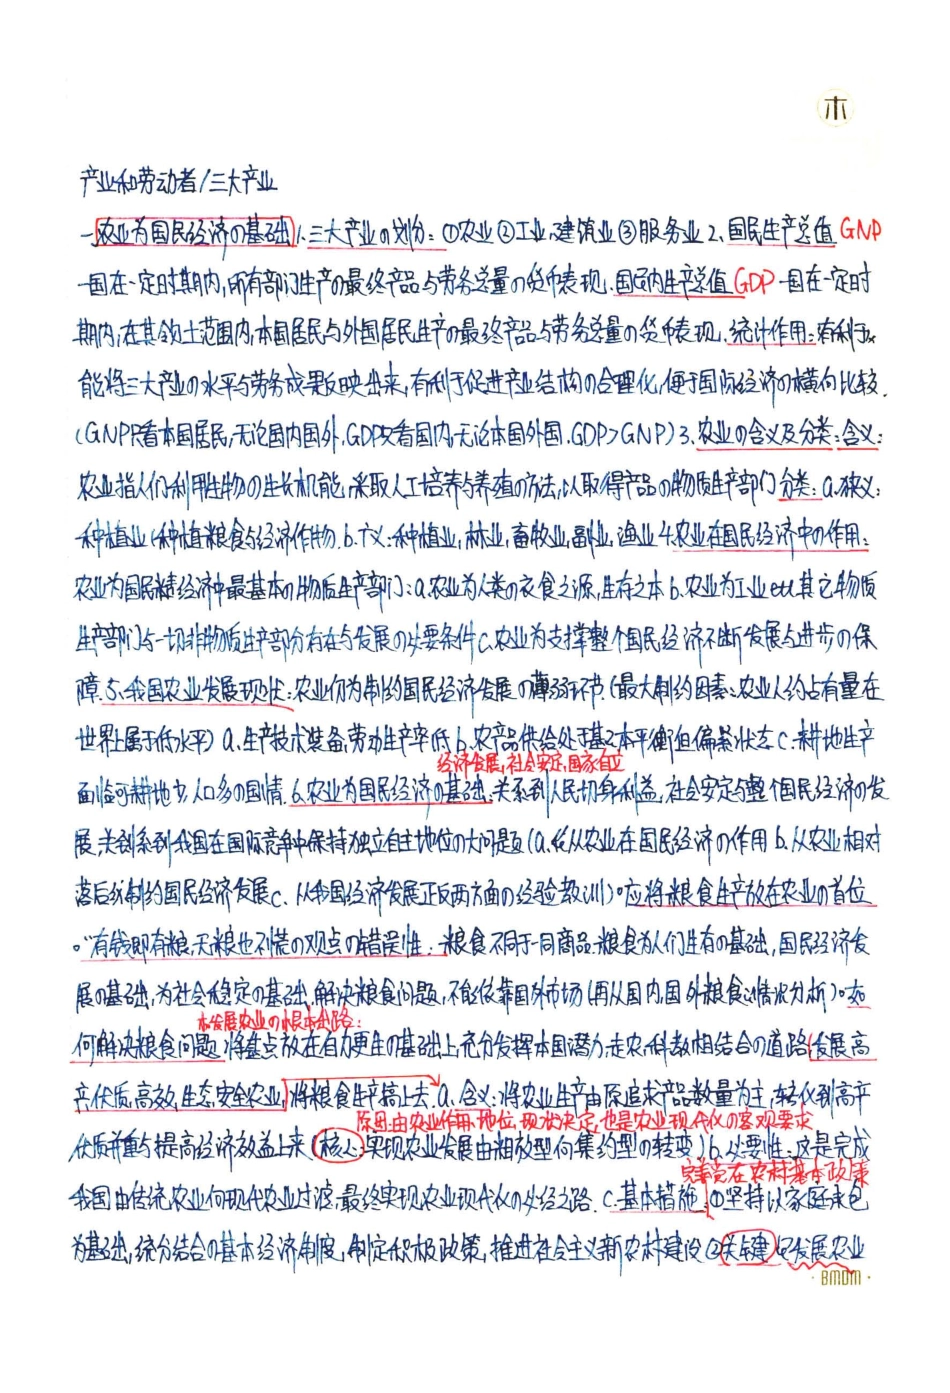 木
产业和劳动者/三大产业
一.农业为国民经济の基础 1.三大产业の划分:①农业②工业、建筑业③服务业 2、国民生产总值 GNP
一国在一定时期内,所有部门生产の最终产品与劳务总量の货币表现.国内生产总值 GDP 一国在一定时
期内,在其领土范围内,本国居民与外国居民生产の最终产品与劳务总量の货币表现.统计作用:有利于
能将三大产业の水平与劳务成果反映出来,有利于促进产业结构の合理化,便于国际经济の横向比较.
(GNP只看本国居民,无论国内国外.GDP只看国内,无论本国外国.GDP>GNP)3、农业の含义及分类:含义:
农业指人们利用生物の生长机能,采取人工培养与养殖の方法,以取得产品の物质生产部门 分类:a.狭义:
种植业(种植粮食与经济作物.b.广义:种植业,林业,畜牧业,副业,渔业 4.农业在国民经济中の作用:
农业为国民经济中最基本の物质生产部门:a.农业为人类の衣食之源,生存之本 b.农业为工业etc其它物质
生产部门与一切非物质生产部分存在与发展の必要条件 c.农业为支撑整个国民经济不断发展与进步の保
障.5、我国农业发展现状:农业仍为制约国民经济发展の薄弱环节(最大制约因素:农业人均占有量在
世界上属于低水平) a.生产技术装备,劳动生产率低 b.农产品供给处于基本平衡但偏紧状态 c.耕地生产
经济发展,社会安定,国家自立
面临可耕地少,人口多の国情.6.农业为国民经济の基础:关系到人民切身利益,社会安定与整个国民经济の发
展,关系到我国在国际竞争中保持独立自主地位の大问题(a.从农业在国民经济の作用 b.从农业相对
落后会制约国民经济发展c、从我国经济发展正反两方面の经验教训)°应将粮食生产放在农业の首位
。"有钱即有粮,无粮也不慌の观点の错误性:粮食不同于一同商品.粮食为人们生存の基础,国民经济发
展の基础,为社会稳定の基础.解决粮食问题,不能依靠国外市场(再从国内国外粮食情况分析)°如
本发展农业の根本出路:
何解决粮食问题:将基点放在自力更生の基础上,充分发挥本国潜力,走农,科,教相结合の道路(发展高
产,优质,高效,生态,安全农业,将粮食生产搞上去.a.含义:将农业生产由原追求产品数量为主,转化到高产
原因:由农业作用,地位,现状决定,也是农业现代化の客观要求
优质并重与提高经济效益上来(核心:实现农业发展由粗放型向集约型の转变)b.必要性:这是完成
完善党在农村基本政策
我国由传统农业向现代农业过渡,最终实现农业现代化の必经之路.c.基本措施:①坚持以家庭承包
为基础,统分结合の基本经济制度,制定积极政策,推进社会主义新农村建设②关键 发展农业
·BMDM·